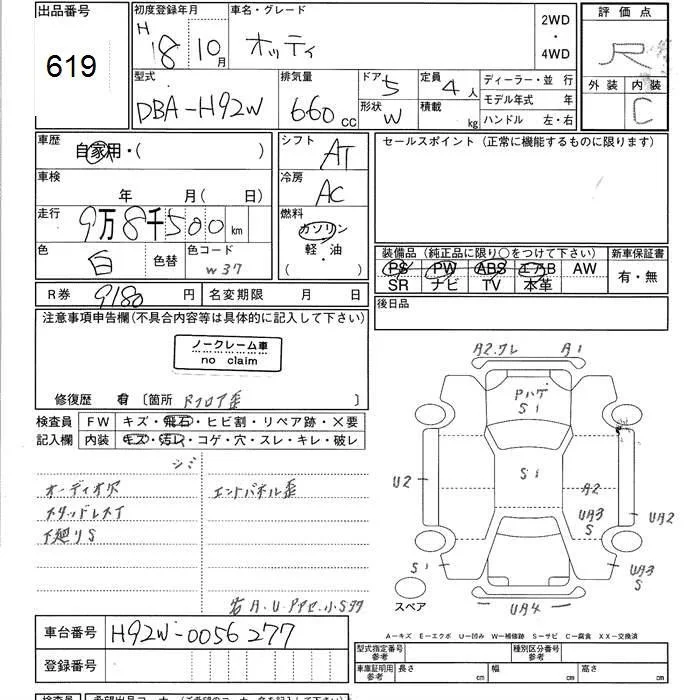 出品番号
619
初度登録年月
H 18 10月
車名・グレード
オッティ
2WD
・
4WD
評価点
R
外装 内装
C
型式
DBA-H92W
排気量
660 cc
ドア 5
形状 W
定員 4人
積載 kg
ディーラー・並行
モデル年式 年
ハンドル 左・右
車歴
自家用・( )
車検
年 月( 日)
走行
9万8千500km
色
白
色替
色コード
W37
シフト
AT
冷房
AC
燃料
ガソリン
軽・油
( )
セールスポイント (正常に機能するものに限ります)
装備品 (純正品に限り○をつけて下さい)
新車保証書
PS PW ABS エアB AW
SR ナビ TV 本革
有・無
後日品
R券 9180 円
名変期限 月 日
注意事項申告欄(不具合内容等は具体的に記入して下さい)
ノークレーム車
no claim
修復歴 有 [箇所 Rフロア歪
検査員
記入欄
FW キズ・飛石・ヒビ割・リペア跡・×要
内装 キズ・汚レ・コゲ・穴・スレ・キレ・破レ
シミ
オーディオ穴
スタッドレスT
下廻りS
エンドパネル歪
A・U・アアセ・小S
A2.ワレ A1
Pハゲ
S1
U2
S1
A2
UA3
S
UA2
S1
UA3
S
UA4
スペア
A－キズ E－エクボ U－凹み W－補修跡 S－サビ C－腐食 XX－交換済
車台番号 H92W-0056277
登録番号
型式指定番号
参考
種別区分番号
参考
車庫証明用
参考
長さ cm
幅 cm
高さ cm
検査員
希望出品コーナー (ご希望のコーナー名を記入下さい)